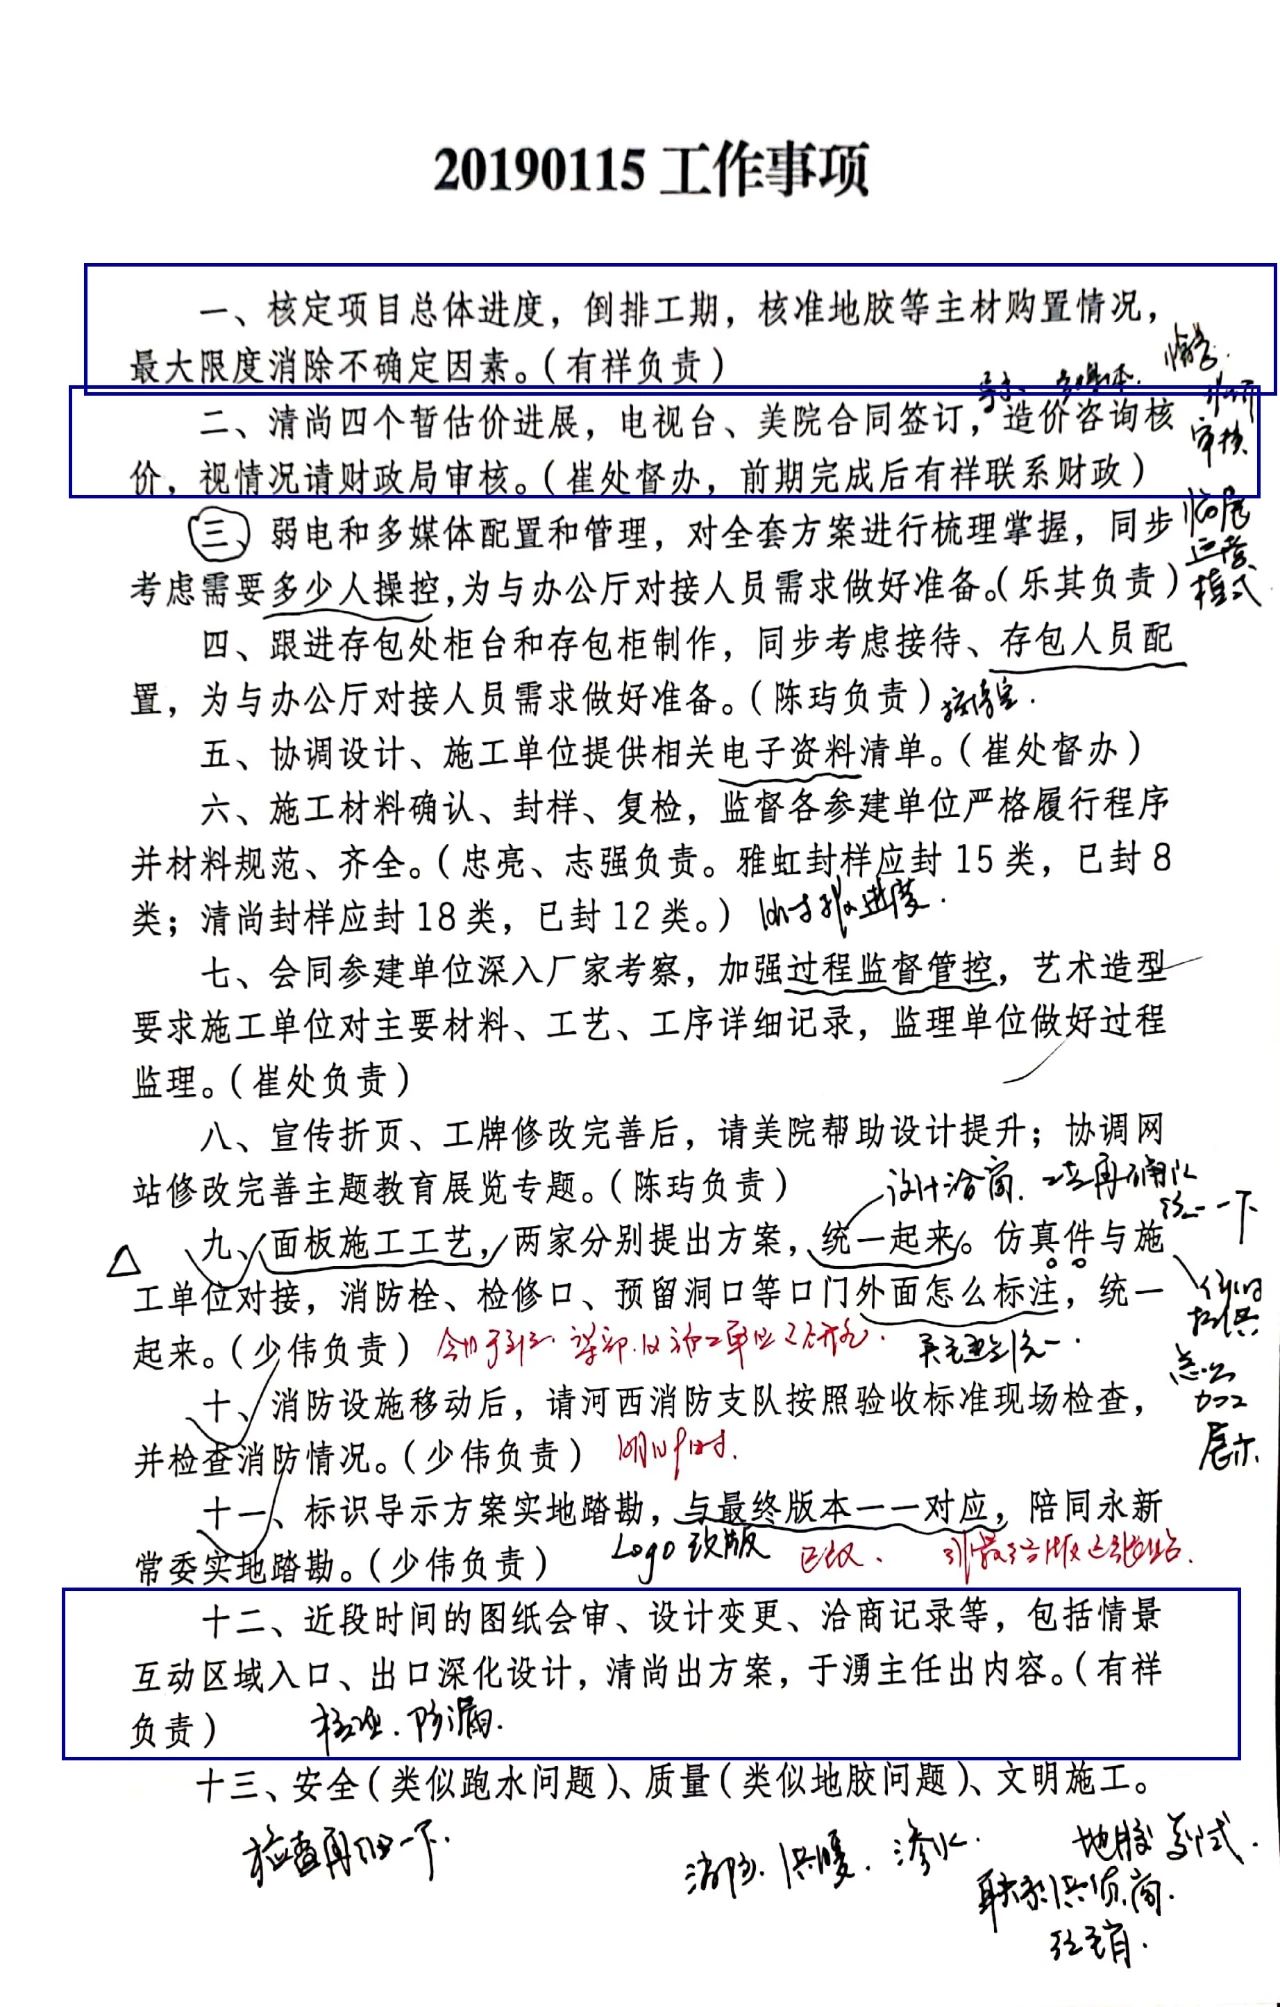 20190115 工作事项
一、核定项目总体进度，倒排工期，核准地胶等主材购置情况，
最大限度消除不确定因素。（有祥负责）
二、清尚四个暂估价进展，电视台、美院合同签订，造价咨询核
审核
价，视情况请财政局审核。（崔处督办，前期完成后有祥联系财政）
临展
三、弱电和多媒体配置和管理，对全套方案进行梳理掌握，同步
运营
模式
考虑需要多少人操控，为与办公厅对接人员需求做好准备。（乐其负责）
四、跟进存包处柜台和存包柜制作，同步考虑接待、存包人员配
置，为与办公厅对接人员需求做好准备。（陈玙负责）接待室.
五、协调设计、施工单位提供相关电子资料清单。（崔处督办）
六、施工材料确认、封样、复检，监督各参建单位严格履行程序
并材料规范、齐全。（忠亮、志强负责。雅虹封样应封 15 类，已封 8
类；清尚封样应封 18 类，已封 12 类。）及时报进度.
七、会同参建单位深入厂家考察，加强过程监督管控，艺术造型
要求施工单位对主要材料、工艺、工序详细记录，监理单位做好过程
监理。（崔处负责）
八、宣传折页、工牌修改完善后，请美院帮助设计提升；协调网
站修改完善主题教育展览专题。（陈玙负责）
设计洽商.
九、面板施工工艺，两家分别提出方案，统一起来。仿真件与施
工单位对接，消防栓、检修口、预留洞口等口门外面怎么标注，统一
起来。（少伟负责）
十、消防设施移动后，请河西消防支队按照验收标准现场检查，
加工
展示
并检查消防情况。（少伟负责）
十一、标识导示方案实地踏勘，与最终版本一一对应，陪同永新
常委实地踏勘。（少伟负责） Logo 改版
十二、近段时间的图纸会审、设计变更、洽商记录等，包括情景
互动区域入口、出口深化设计，清尚出方案，于湧主任出内容。（有祥
负责） 核准. 防漏.
十三、安全（类似跑水问题）、质量（类似地胶问题）、文明施工。
检查再细一下.
消防. 供暖. 渗水.
地胶
联系供货商.
经销.